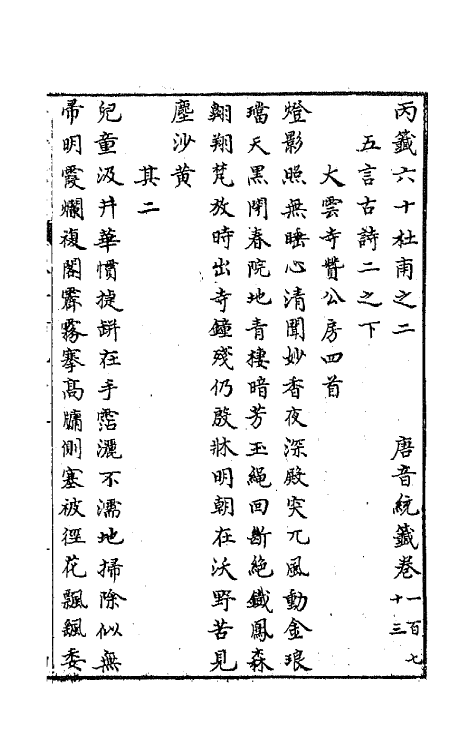 丙籤六十杜甫之二　唐音統籤卷一百七十三
五言古詩二之下
大雲寺贊公房四首
燈影照無睡心清聞妙香夜深殿突兀風動金琅
璫天黑閉春院地青棲暗芳玉繩回斷絶鐵鳳森
翱翔梵放時出寺鐘殘仍殷牀明朝在沃野苦見
塵沙黄
其二
兒童汲井華慣捷缾在手霑灑不濡地掃除似無
帚明霞爛複閣霽霧搴高牖側塞被徑花飄颻委